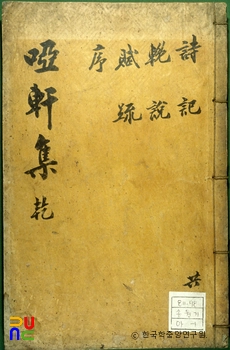 詩記
輓說
賦疏
序
啞軒集 乾
共
© 한국학중앙연구원